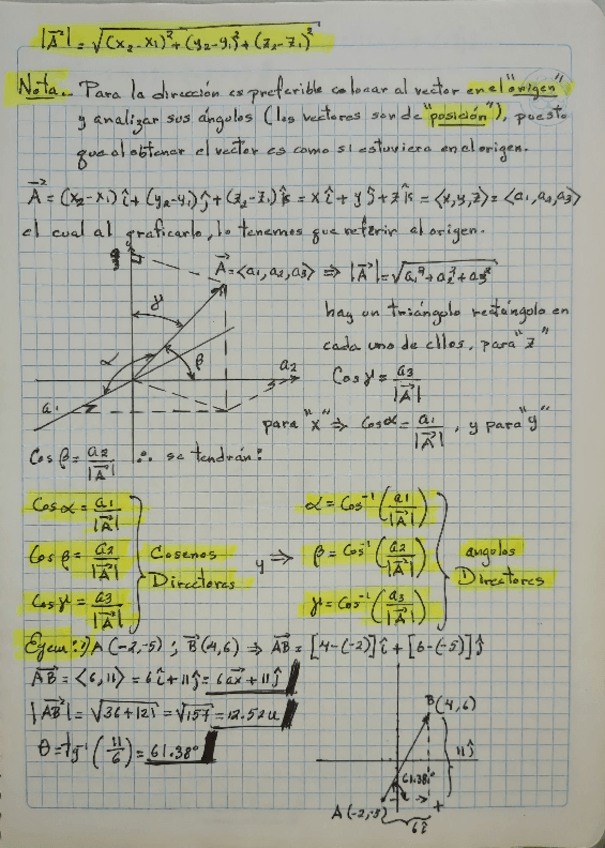 |A⃗| = √(x₂-x₁)²+(y₂-y₁)²+(z₂-z₁)²
Nota.. Para la dirección es preferible colocar al vector en el "origen"
y analizar sus ángulos (los vectores son de "posición"), puesto
que al obtener el vector es como si estuviera en el origen.
A⃗ = (x₂-x₁)î + (y₂-y₁)ĵ + (z₂-z₁)k̂ = xî + yĵ + zk̂ = ⟨x,y,z⟩ = ⟨a₁,a₂,a₃⟩
el cual al graficarlo, lo tenemos que referir al origen.
A⃗ = ⟨a₁,a₂,a₃⟩ ⇒ |A⃗| = √a₁²+a₂²+a₃²
γ
hay un triángulo rectángulo en
cada uno de ellos, para "z"
α
β
a₂
Cos γ = a₃/|A⃗|
a₁
para "x" ⇒ Cos α = a₁/|A⃗|, y para "y"
Cos β = a₂/|A⃗| ∴ se tendrán:
Cos α = a₁/|A⃗|
Cos β = a₂/|A⃗|
Cos γ = a₃/|A⃗|
Cosenos
Directores
y ⇒
α = Cos⁻¹(a₁/|A⃗|)
β = Cos⁻¹(a₂/|A⃗|)
γ = Cos⁻¹(a₃/|A⃗|)
angulos
Directores
Ejem:1) A(-2,-5) ; B⃗(4,6) ⇒ AB⃗ = [4-(-2)]î + [6-(-5)]ĵ
AB⃗ = ⟨6,11⟩ = 6î + 11ĵ = 6ax⃗ + 11ĵ
|AB⃗| = √36+121 = √157 = 12.52u
θ = tg⁻¹(11/6) = 61.38°
B(4,6)
11ĵ
61.38°
A(-2,-5)
6î